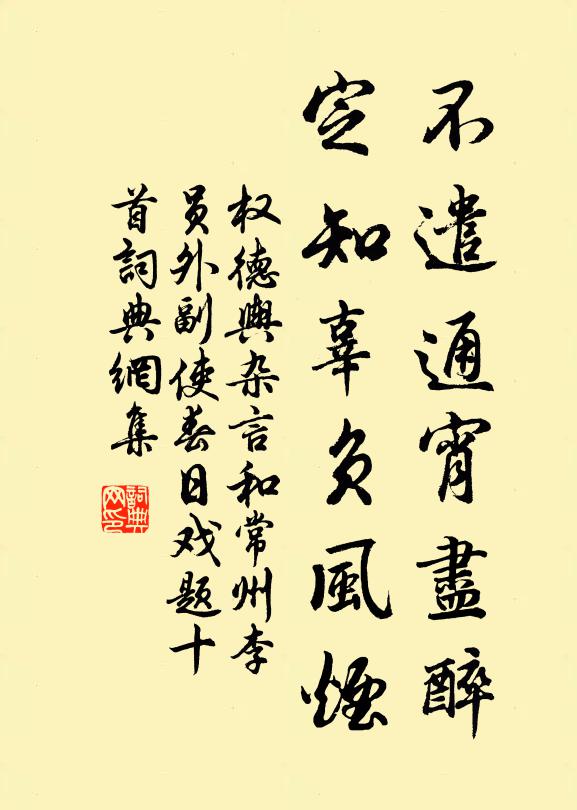 不遣通宵盡醉
定知辜負風煙
权德輿杂言和常州李
員外副使春日戏题十
首詞典網集
詞典
网印